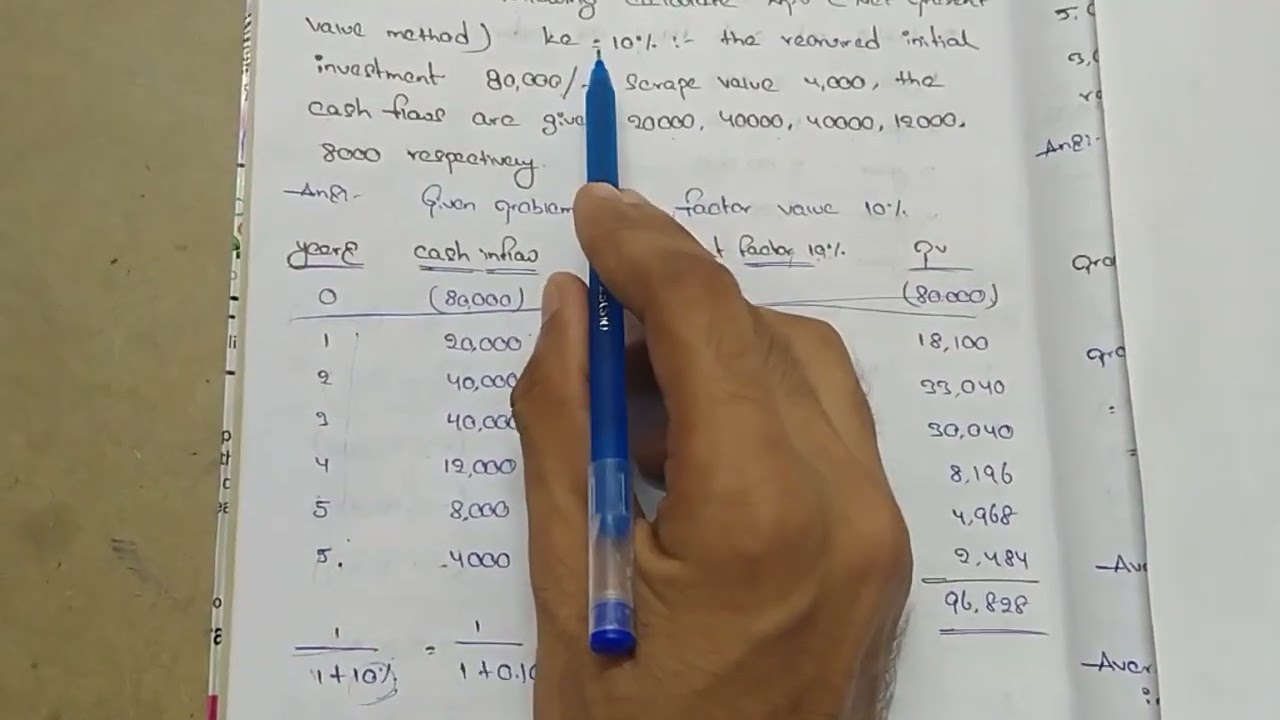 value method) ke = 10% :- the required initial
investment 80,000/- Scrape value 4,000, the
cash flows are given 20000, 40000, 40000, 12000.
8000 respectively.
Ans:- Given problem factor value 10%
years cash inflow factor 10% PV
0 (80,000) (80,000)
1 20,000 18,100
2 40,000 33,040
3 40,000 30,040
4 12,000 8,196
5 8,000 4,968
5. 4000 2,484
96,828
1 / 1+10% = 1 / 1+0.10
5.
3,
Ans:-
pro
pro
=
=
Ave
Aver